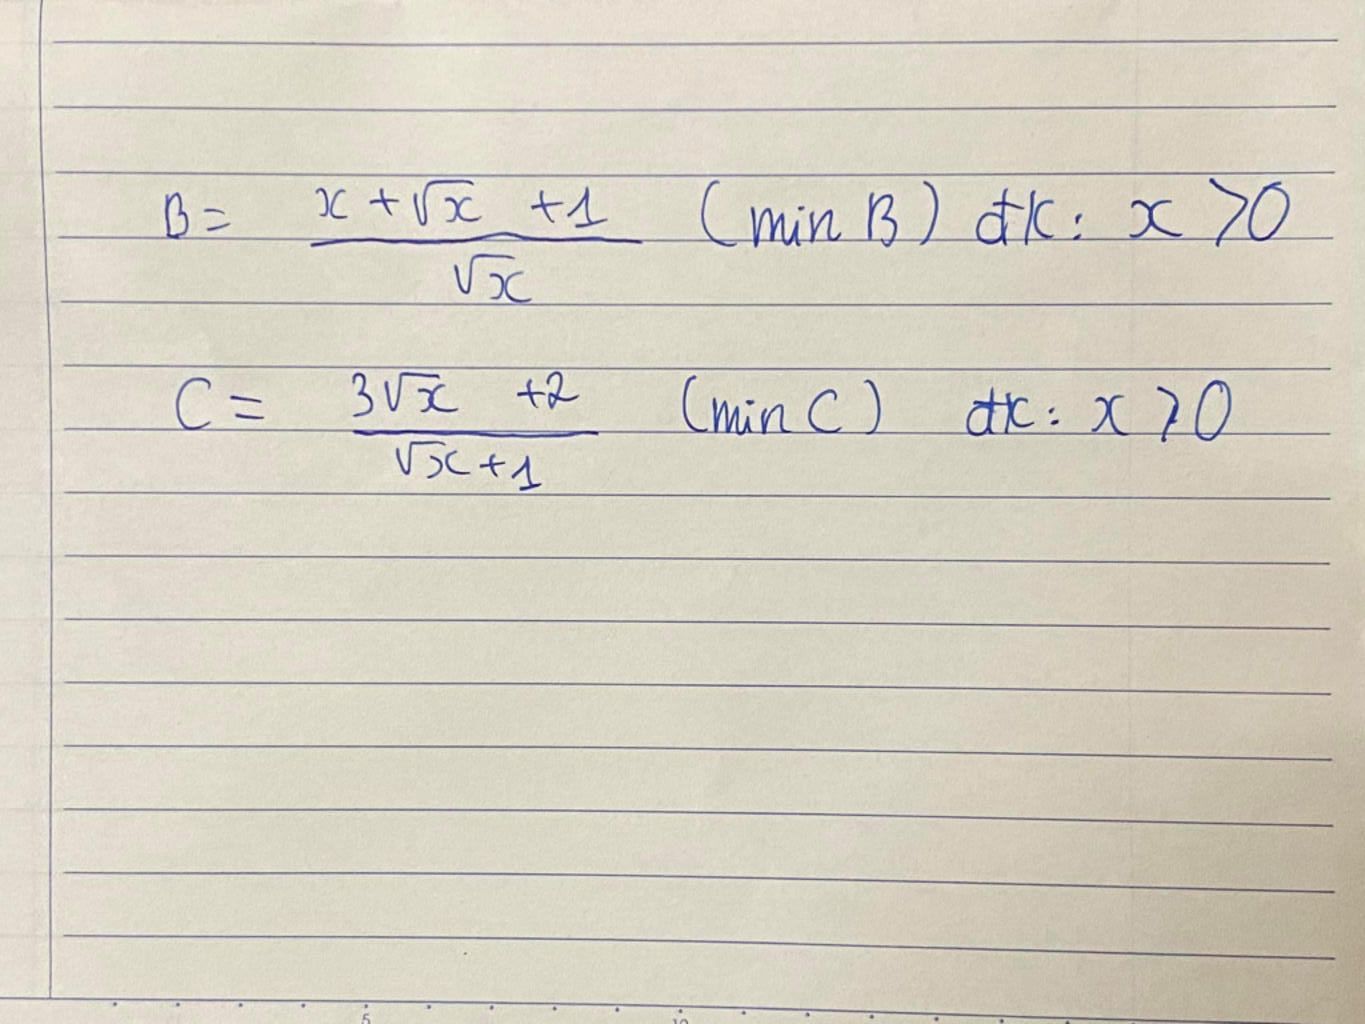 B = (x + √x + 1) / √x (min B) đk: x > 0
C = (3√x + 2) / (√x + 1) (min C) đk: x ⩾ 0
5 10